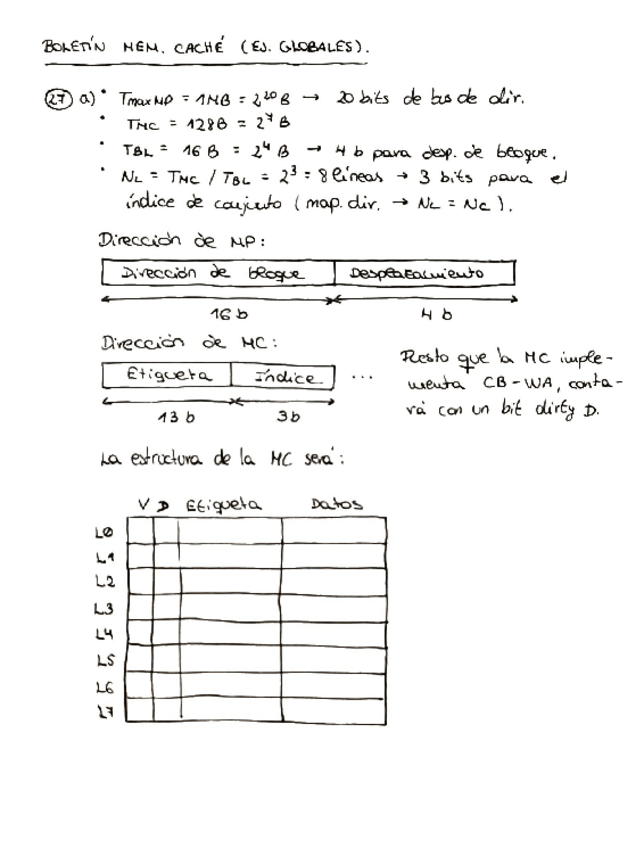 BOLETÍN MEM. CACHÉ (EJ. GLOBALES).
27 a) • TmaxMP = 1MB = 2^20 B → 20 bits de bus de dir.
• TMC = 128B = 2^7 B
• TBL = 16 B = 2^4 B → 4 b para desp. de bloque.
• NL = TMC / TBL = 2^3 = 8 líneas → 3 bits para el
índice de conjunto (map. dir. → NL = NC).
Dirección de MP:
Dirección de bloque Desplazamiento
16 b 4 b
Dirección de MC:
Etiqueta Índice ...
13 b 3b
Puesto que la MC imple-
menta CB-WA, conta-
rá con un bit dirty D.
La estructura de la MC será:
V D Etiqueta Datos
L0
L1
L2
L3
L4
L5
L6
L7